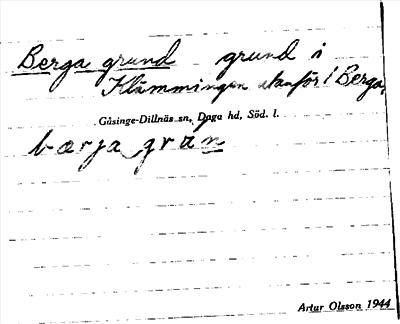 Berga grund grund i
Klämmingen utanför 1 Berga,
Gåsinge-Dillnäs sn, Daga hd, Söd. l.
bærja grun
Artur Olsson 1944